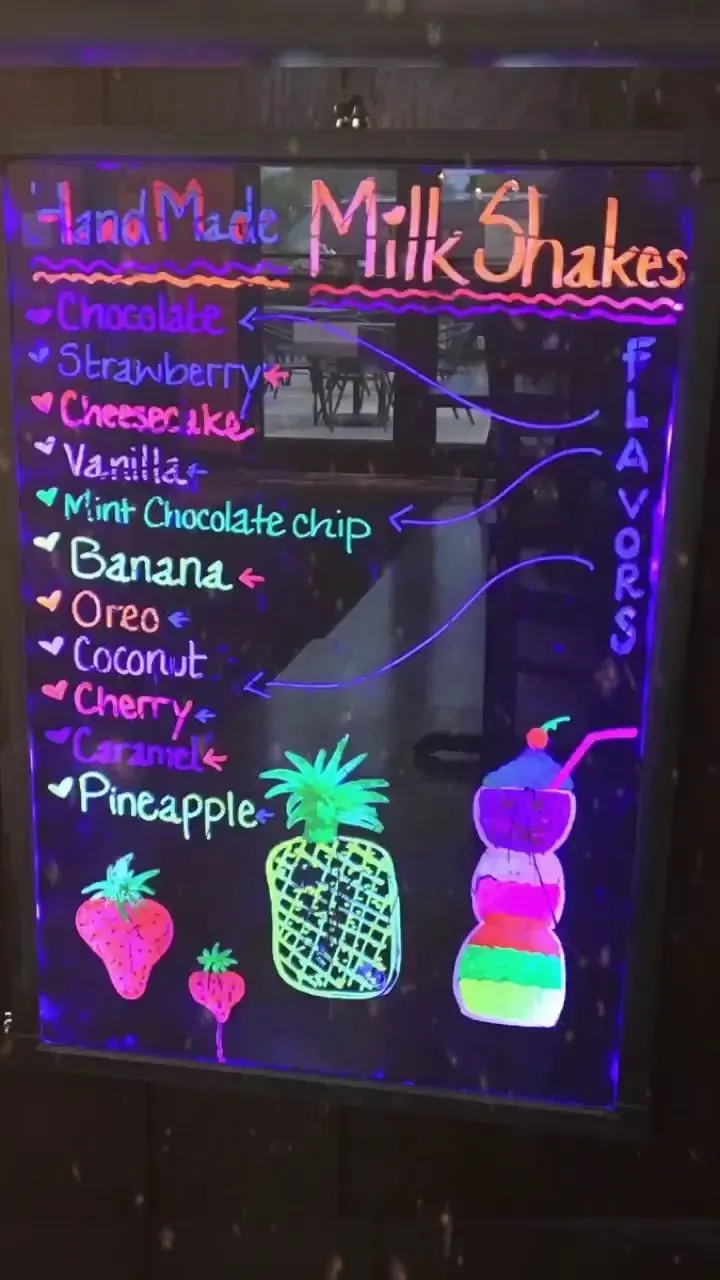 Hand Made Milk Shakes
Chocolate
Strawberry
Cheesecake
Vanilla
Mint Chocolate chip
Banana
Oreo
Coconut
Cherry
Caramel
Pineapple
FLAVORS